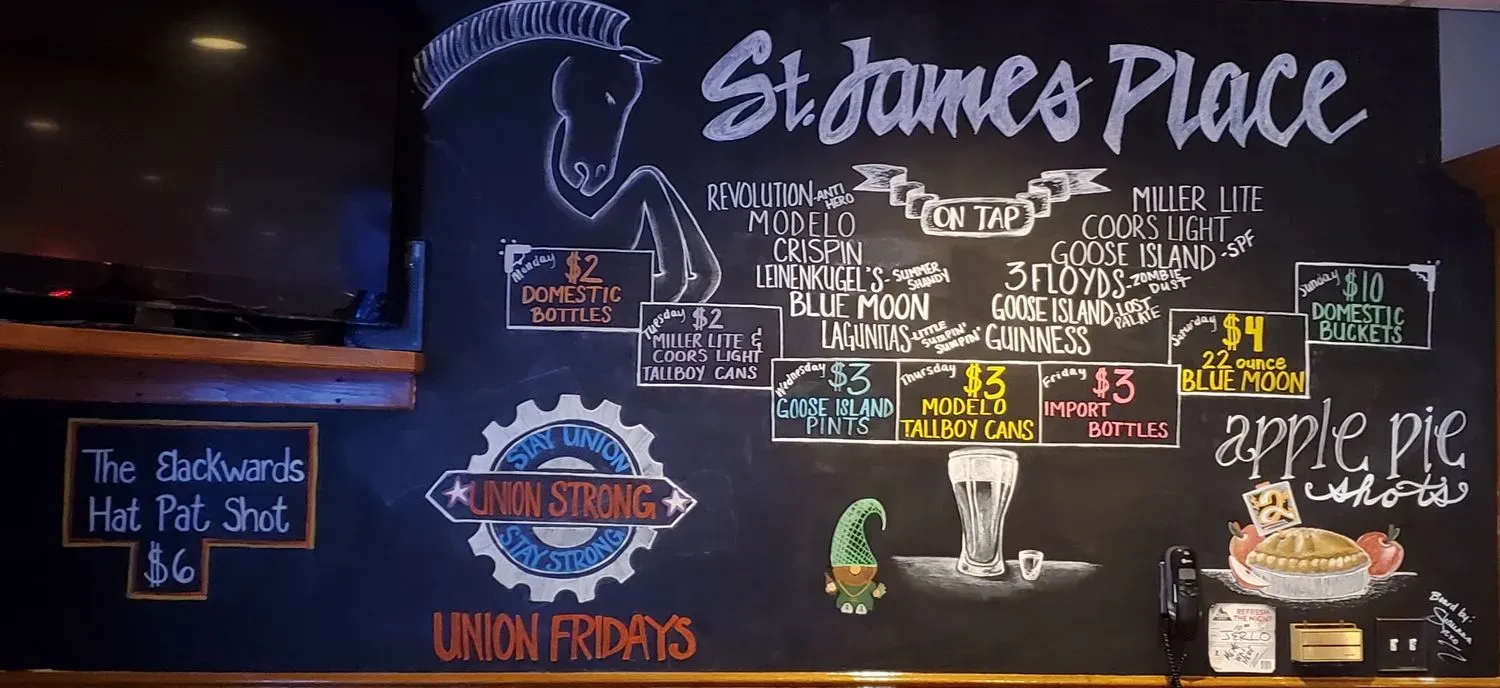 St. James Place
ON TAP
REVOLUTION-ANTI HERO
MODELO
CRISPIN
LEINENKUGEL'S-SUMMER SHANDY
BLUE MOON
LAGUNITAS-LITTLE SUMPIN' SUMPIN'
MILLER LITE
COORS LIGHT
GOOSE ISLAND-SPF
3 FLOYDS-ZOMBIE DUST
GOOSE ISLAND-LOST PALATE
GUINNESS
Monday $2
DOMESTIC
BOTTLES
Tuesday $2
MILLER LITE &
COORS LIGHT
TALLBOY CANS
Wednesday $3
GOOSE ISLAND
PINTS
Thursday $3
MODELO
TALLBOY CANS
Friday $3
IMPORT
BOTTLES
Saturday $4
22 ounce
BLUE MOON
Sunday $10
DOMESTIC
BUCKETS
The Backwards
Hat Pat Shot
$6
STAY UNION
UNION STRONG
STAY STRONG
UNION FRIDAYS
apple pie
shots
2
REFRESH
THE NIGHT
Board by:
Shawna
xoxo